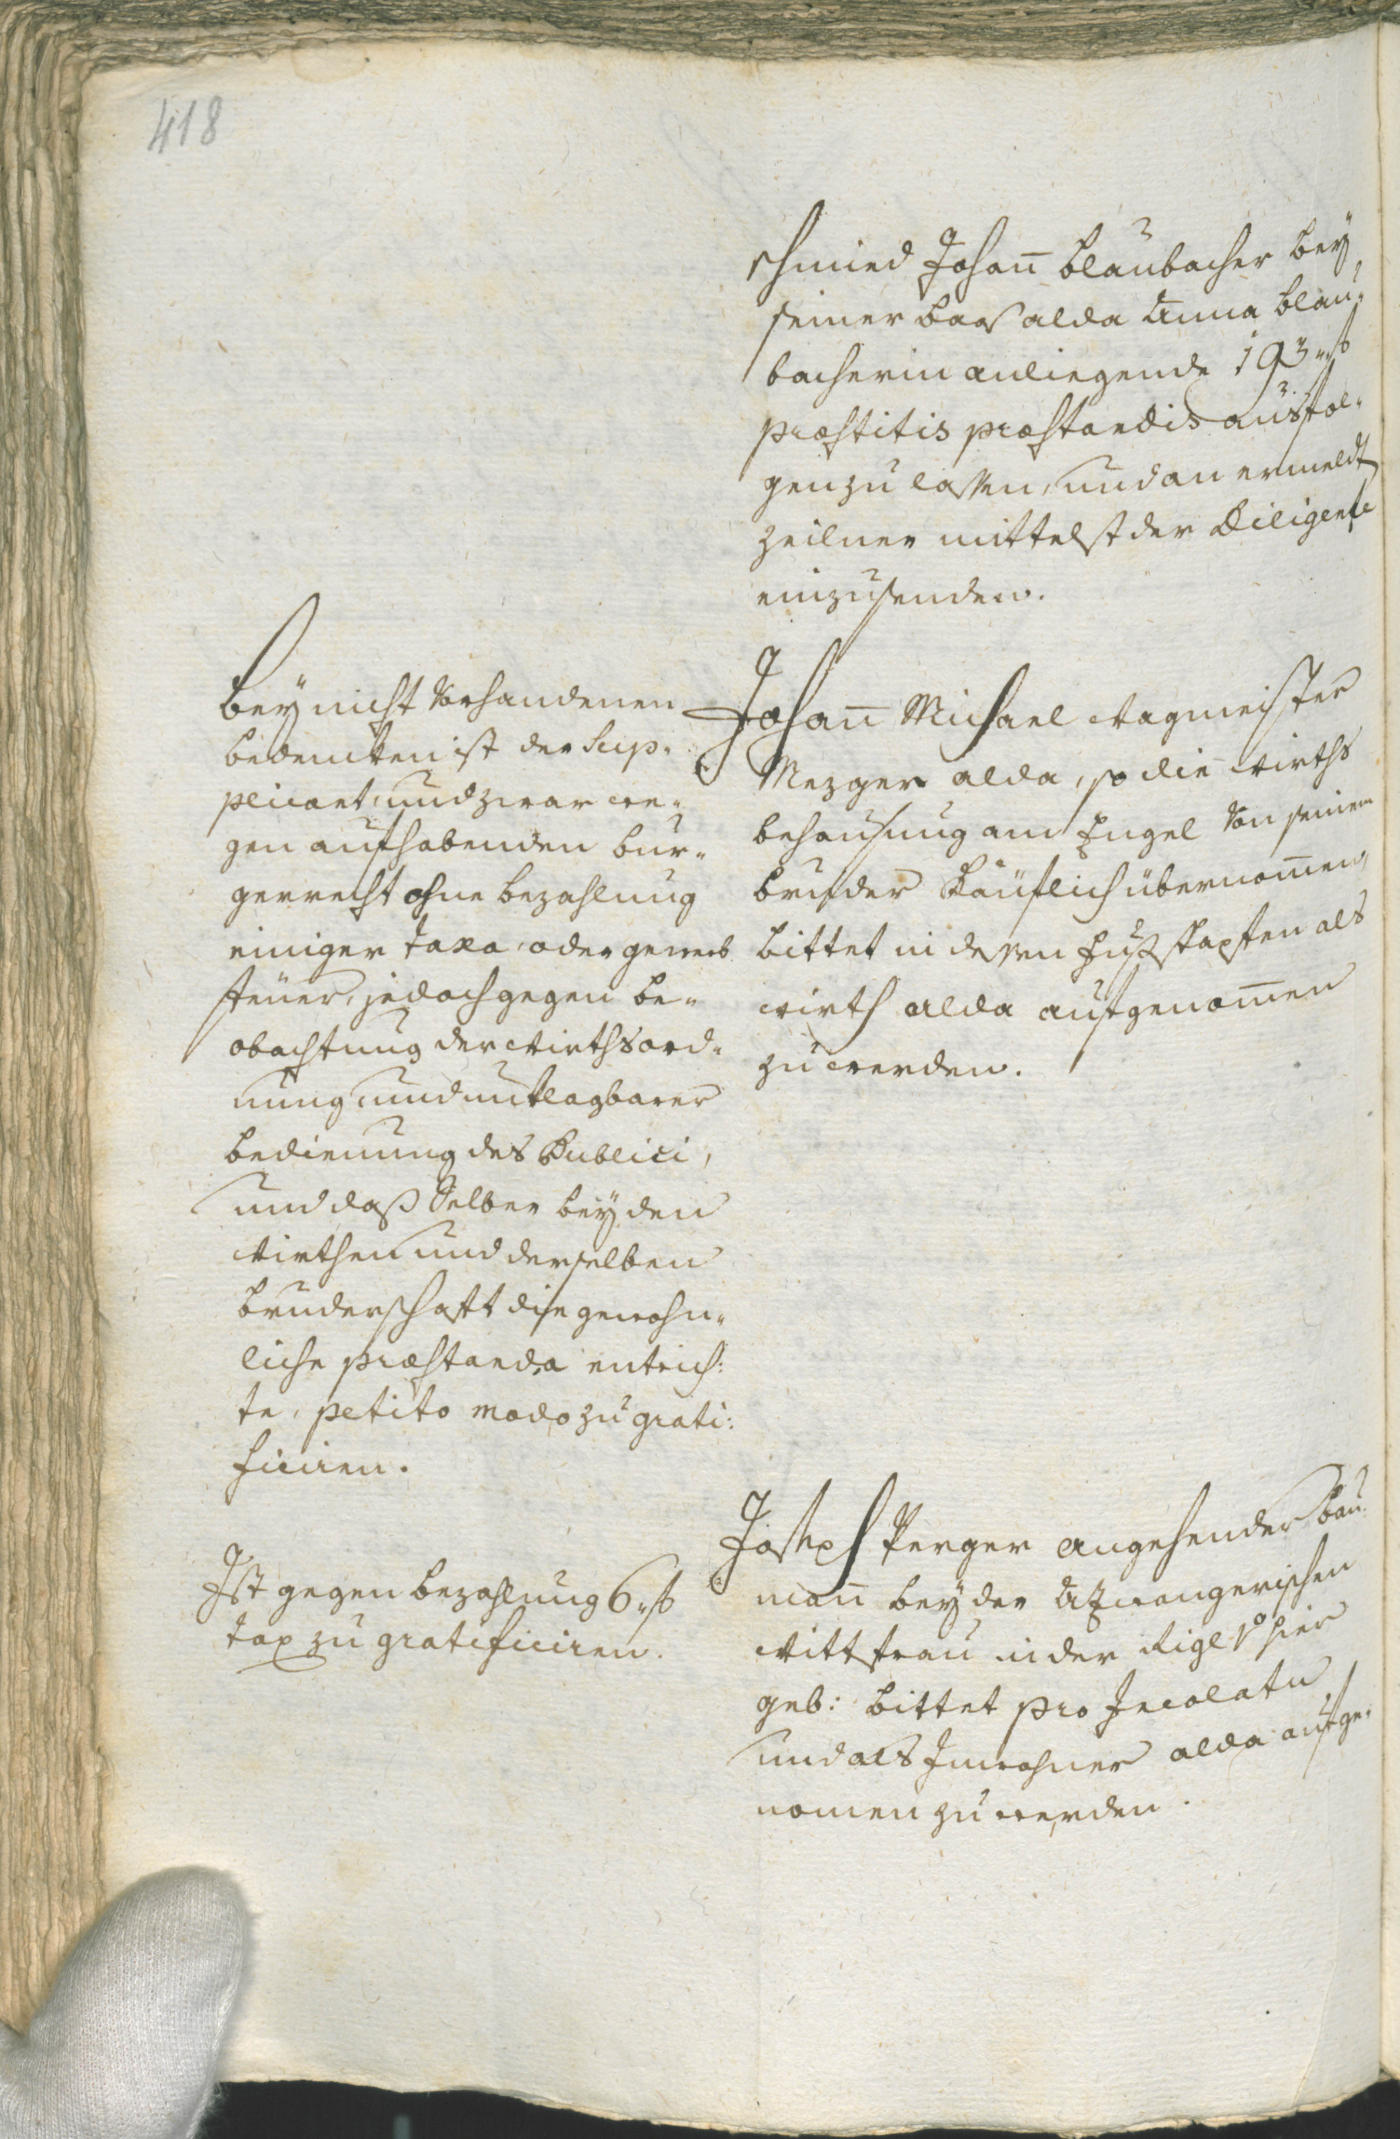 418
schmied Johan̄ Blaubacher beÿ
seiner Baas alda Anna Blau-
bacherin anliegende 193 f
præstitis præstandis ausfol-
gen zu lassen, und an ermeldt
Zeilner mittelst der Diligence
einzusenden.
Beÿ nicht vorhandenen
bedenken ist der Sup-
plicant, und zwar we-
gen aufhabenden Bur-
gerrecht ohne bezahlung
einiger Taxa, oder gewerb
steüer, jedoch gegen be-
obachtung der Wirthsord-
nung und unklagbarer
bedienung des Publici,
und daß Selber beÿ den
Wirthen und derselben
bruderschaft die gewohn-
liche præstanda entrich:
te, petito modo zu grati:
ficiren.
Johan̄ Michael Wagmeister
Mezger alda, so die Wirths
behausung am Engel von seinem
bruder käuflich übernom̄en,
bittet in dessen Fußstapfen als
Wirth alda aufgenom̄en
zu werden.
Ist gegen bezahlung 6 f
tax zu gratificiren.
Joseph Perger angehender Bau-
man̄ beÿ der Atzwangerischen
Wittfrau in der Rigl V hier
geb: bittet pro Incolatu
und als Inwohner alda aufge-
nomen zu werden.